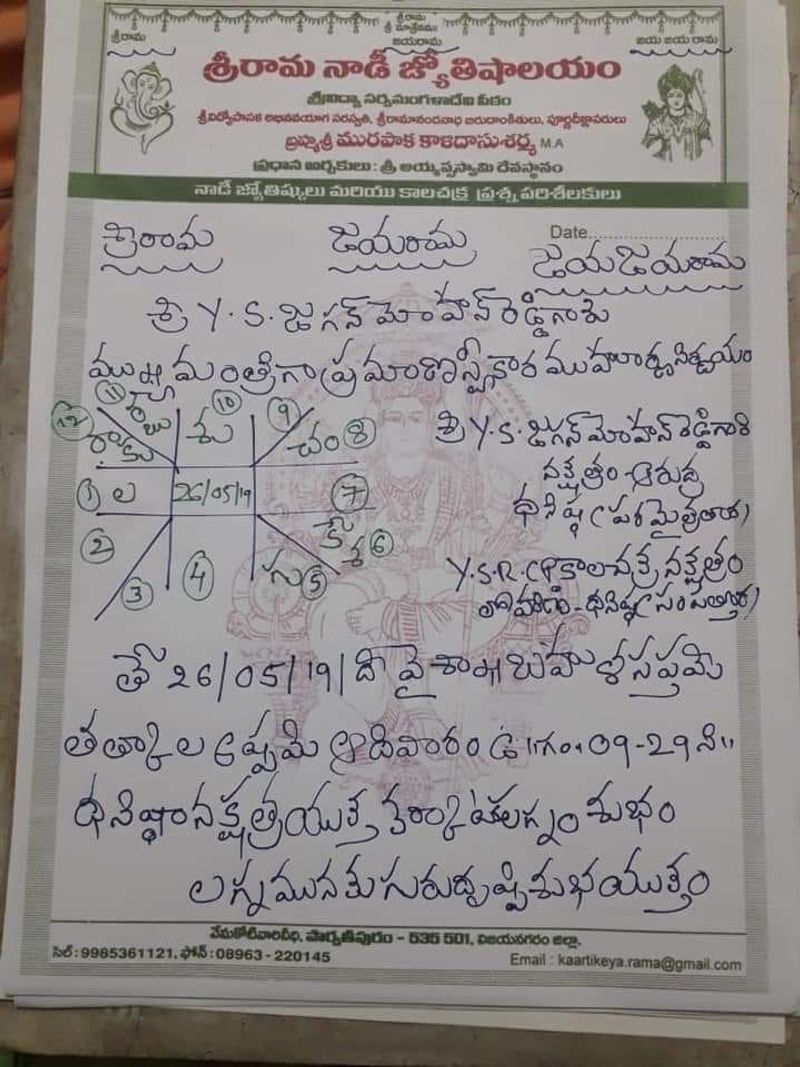 శ్రీరామ
శ్రీరామ
శ్రీ మాత్రేనమః
జయరామ
జయ జయ రామ
శ్రీరామ నాడీ జ్యోతిషాలయం
శ్రీవిద్యా సర్వమంగళాదేవి పీఠం
శ్రీవిద్యోపాసక అభినవయాగ సరస్వతి, శ్రీరామానందనాథ బిరుదాంకితులు, పూర్ణదీక్షాపరులు
బ్రహ్మశ్రీ మురపాక కాళిదాసుశర్మ M.A
ప్రధాన అర్చకులు : శ్రీ అయ్యప్పస్వామి దేవస్థానం
నాడీ జ్యోతిష్కులు మరియు కాలచక్ర ప్రశ్న పరిశీలకులు
Date
శ్రీరామ జయరామ జయజయరామ
శ్రీ Y.S. జగన్ మోహన్ రెడ్డిగారు
ముఖ్య మంత్రిగా ప్రమాణస్వీకార ముహూర్త నిర్ణయం
12 11 10 9
రాకు రబు శు చం 8
1 ల 26/05/19 7
2 3 4 గు 5 కే శ 6
శ్రీ Y.S. జగన్ మోహన్ రెడ్డిగారి
నక్షత్రం ఆరుద్ర
ధనిష్ఠ (పరమైత్రతార)
Y.S.R.CP కాలచక్ర నక్షత్రం
రోహిణి - ధనిష్ఠ (సంపత్తార)
తే 26/05/19/ది వైశాఖ బహుళ సప్తమి
తత్కాల అష్టమి ఆదివారం ఉ॥గం. 09-29 ని॥
ధనిష్ఠానక్షత్రయుక్త కర్కాటకలగ్నం శుభం
లగ్నమునకు గురుదృష్టి శుభయుక్తం
వేమకోటివారివీధి, పార్వతీపురం - 535 501, విజయనగరం జిల్లా.
సెల్ : 9985361121, ఫోన్ : 08963 - 220145
Email : kaartikeya.rama@gmail.com